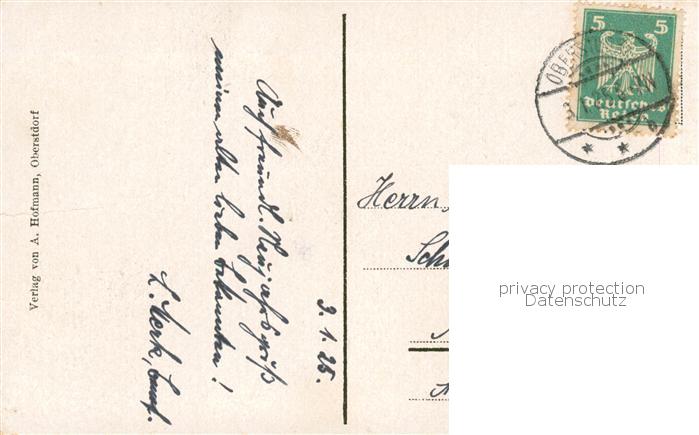 Verlag von A. Hofmann, Oberstdorf
3. 1. 25.
Auf freundl. Neujahrsgruß
meinen alten lieben Bekannten!
L. Merk,
Herrn
Sch
5 5
Deutsches
Reich
privacy protection
Datenschutz